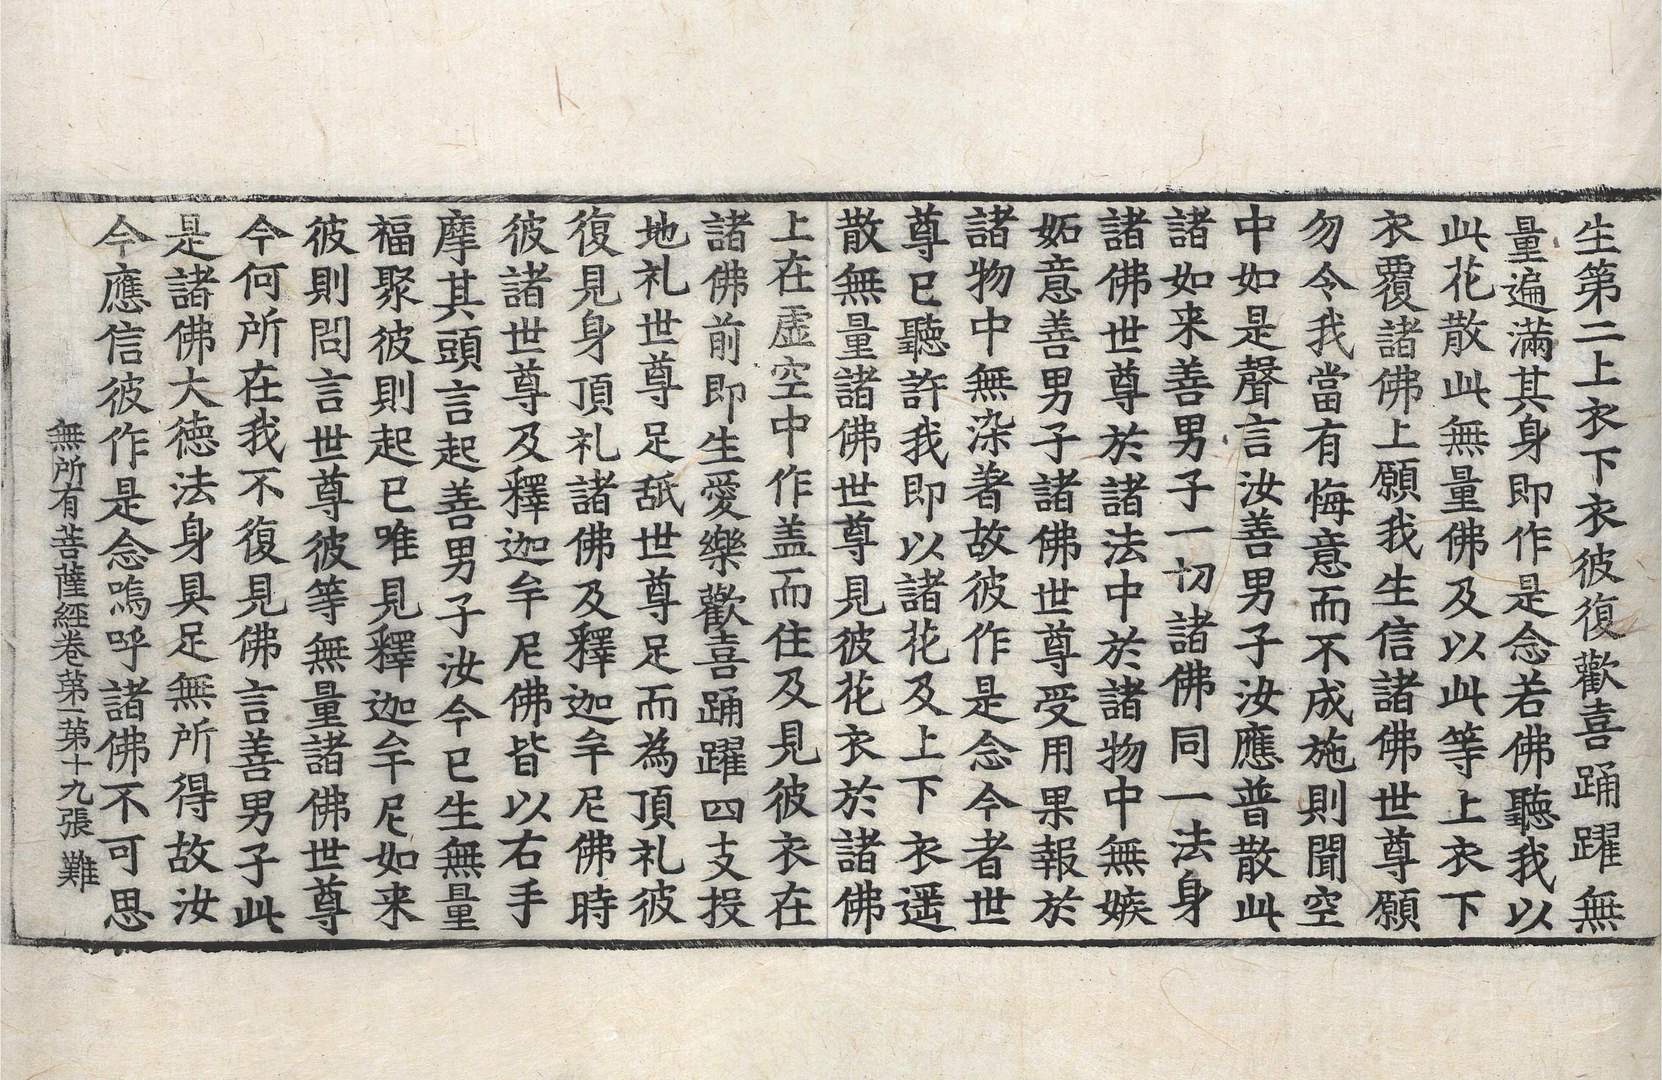 生第二上衣下衣彼復歡喜踊躍無
量遍滿其身即作是念若佛聽我以
此花散此無量佛及以此等上衣下
衣覆諸佛上願我生信諸佛世尊願
勿令我當有悔意而不成施則聞空
中如是聲言汝善男子汝應普散此
諸如来善男子一切諸佛同一法身
諸佛世尊於諸法中於諸物中無嫉
妬意善男子諸佛世尊受用果報於
諸物中無染著故彼作是念今者世
尊已聽許我即以諸花及上下衣遥
散無量諸佛世尊見彼花衣於諸佛
上在虛空中作盖而住及見彼衣在
諸佛前即生愛樂歡喜踊躍四支投
地礼世尊足舐世尊足而為頂礼彼
復見身頂礼諸佛及釋迦牟尼佛時
彼諸世尊及釋迦牟尼佛皆以右手
摩其頭言起善男子汝今已生無量
福聚彼則起已唯見釋迦牟尼如来
彼則問言世尊彼等無量諸佛世尊
今何所在我不復見佛言善男子此
是諸佛大德法身具足無所得故汝
今應信彼作是念嗚呼諸佛不可思
無所有菩薩經卷第二第十九張 難